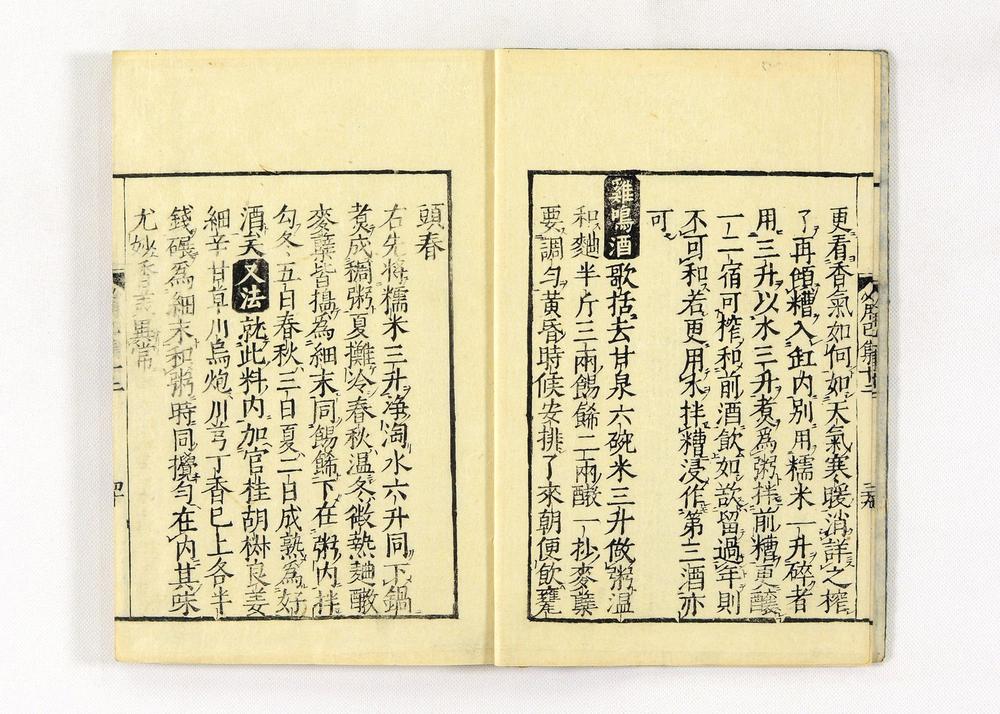 更看香氣如何如天氣寒暖消詳之榨
了再傾糟入缸內別用糯米一升碎者
用三升以水三升煮為粥拌前糟更釀
一二宿可榨和前酒飲如欲留過年則
不可和若更用水拌糟浸作第三酒亦
可
雞鳴酒歌括云甘泉六碗米三升做粥溫
和麯半斤三兩餳餙二兩酵一抄麥蘗
要調勻黃昏時候安排了來朝便飲甕
頭春
右先將糯米三升淨淘水六升同下鍋
煮成稠粥夏攤冷春秋溫冬微熱麯酵
麥蘗皆搗為細末同餳餙下在粥內拌
勻冬五日春秋三日夏二日成熟為好
酒矣又法就此料內加官桂胡椒良姜
細辛甘草川烏炮川芎丁香已上各半
錢碾為細末和粥時同攪勻在內其味
尤妙香美異常